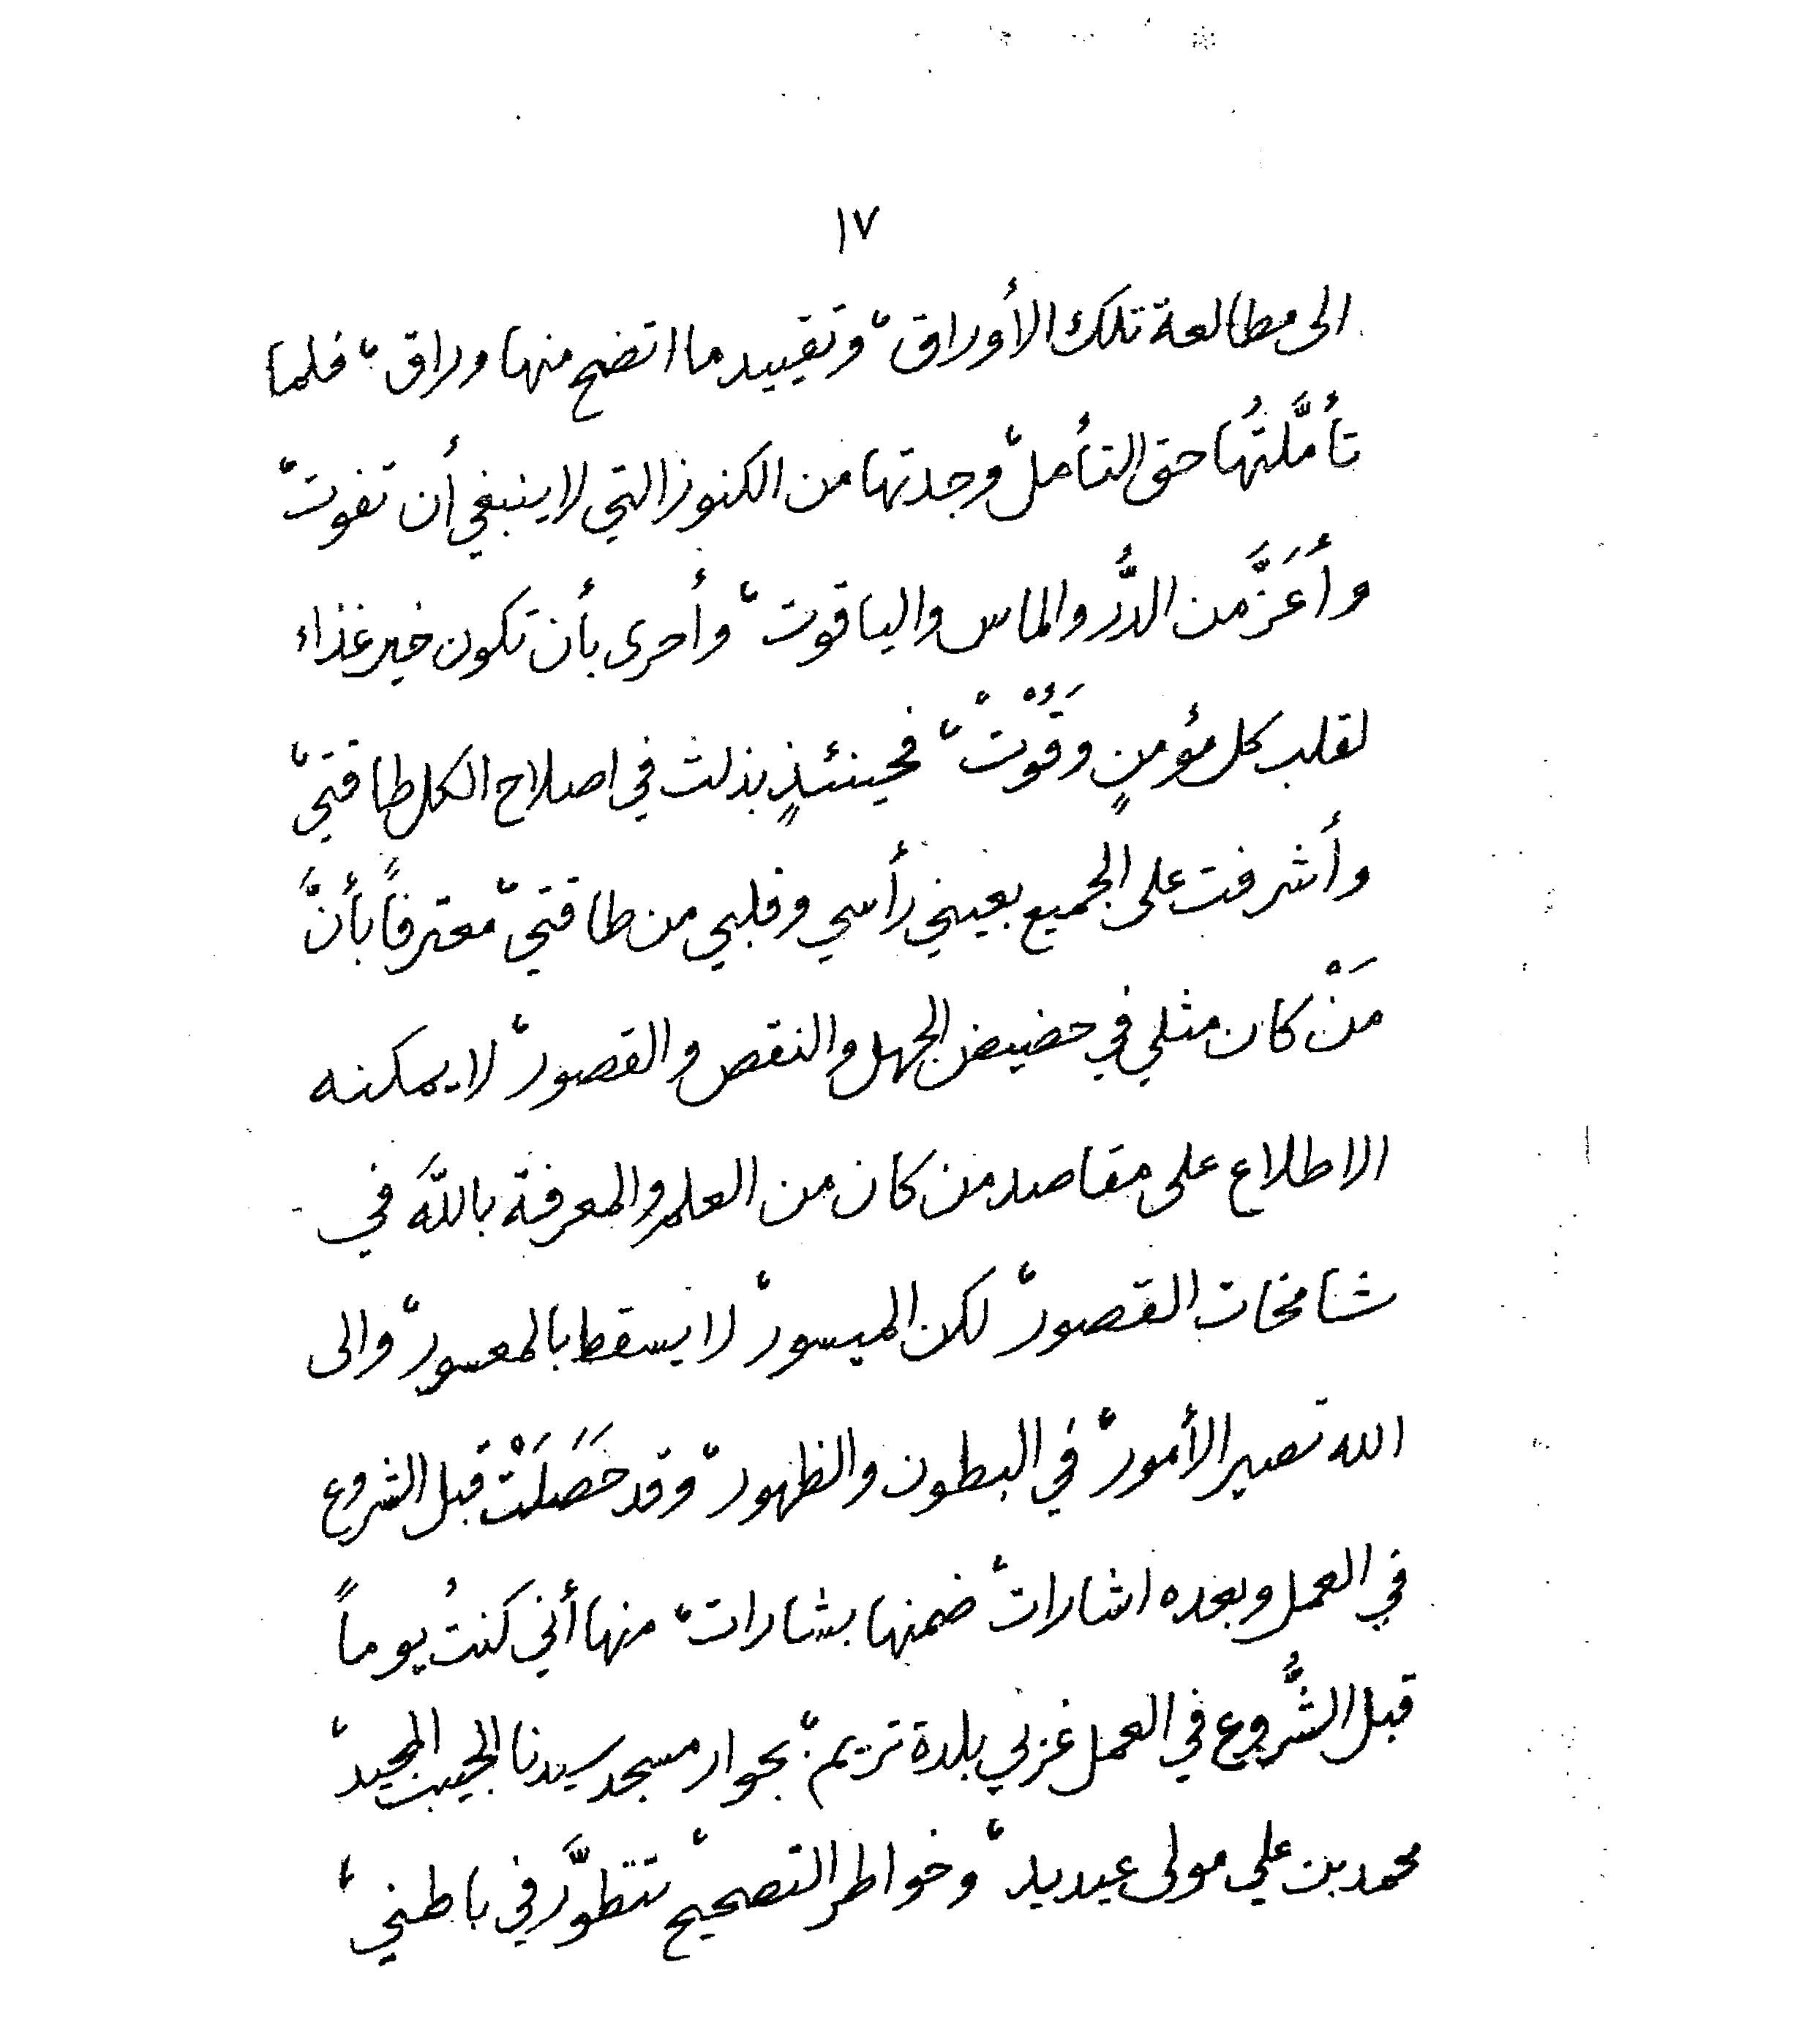 ١٧
الى مطالعة تلك الأوراق، وتقييد ما اتضح منها وراق، فلما
تأمَّلتُها حق التأمل، وجدتها من الكنوز التي لا ينبغي أن تفوت،
وأَعَزَّ من الدُّر والماس والياقوت، وأحرى بأن تكون خير غذاء
لقلب كل مؤمنٍ وَقُوْتْ، فحينئذٍ بذلت في اصلاح الكل طاقتي،
وأشرفت على الجميع بعيني رأسي وقلبي من طاقتي، معترفاً بأنَّ
مَنْ كان مثلي في حضيض الجهل والنقص والقصور، لا يمكنه
الاطلاع على مقاصد من كان من العلم والمعرفة باللَّه في
شامخات القصور، لكن الميسور، لا يسقط بالمعسور، والى
الله تصير الأمور، في البطون والظهور، وقد حَصَلَتْ قبل الشروع
في العمل وبعده اشارات، ضمنها بشارات، منها أني كنتُ يوماً
قبل الشُّروع في العمل غربي بلدة تريم، بجوار مسجد سيدنا الحبيب المجيد،
محمد بن علي مولى عيديد، وخواطر التصحيح، تتطوَّر في باطني،